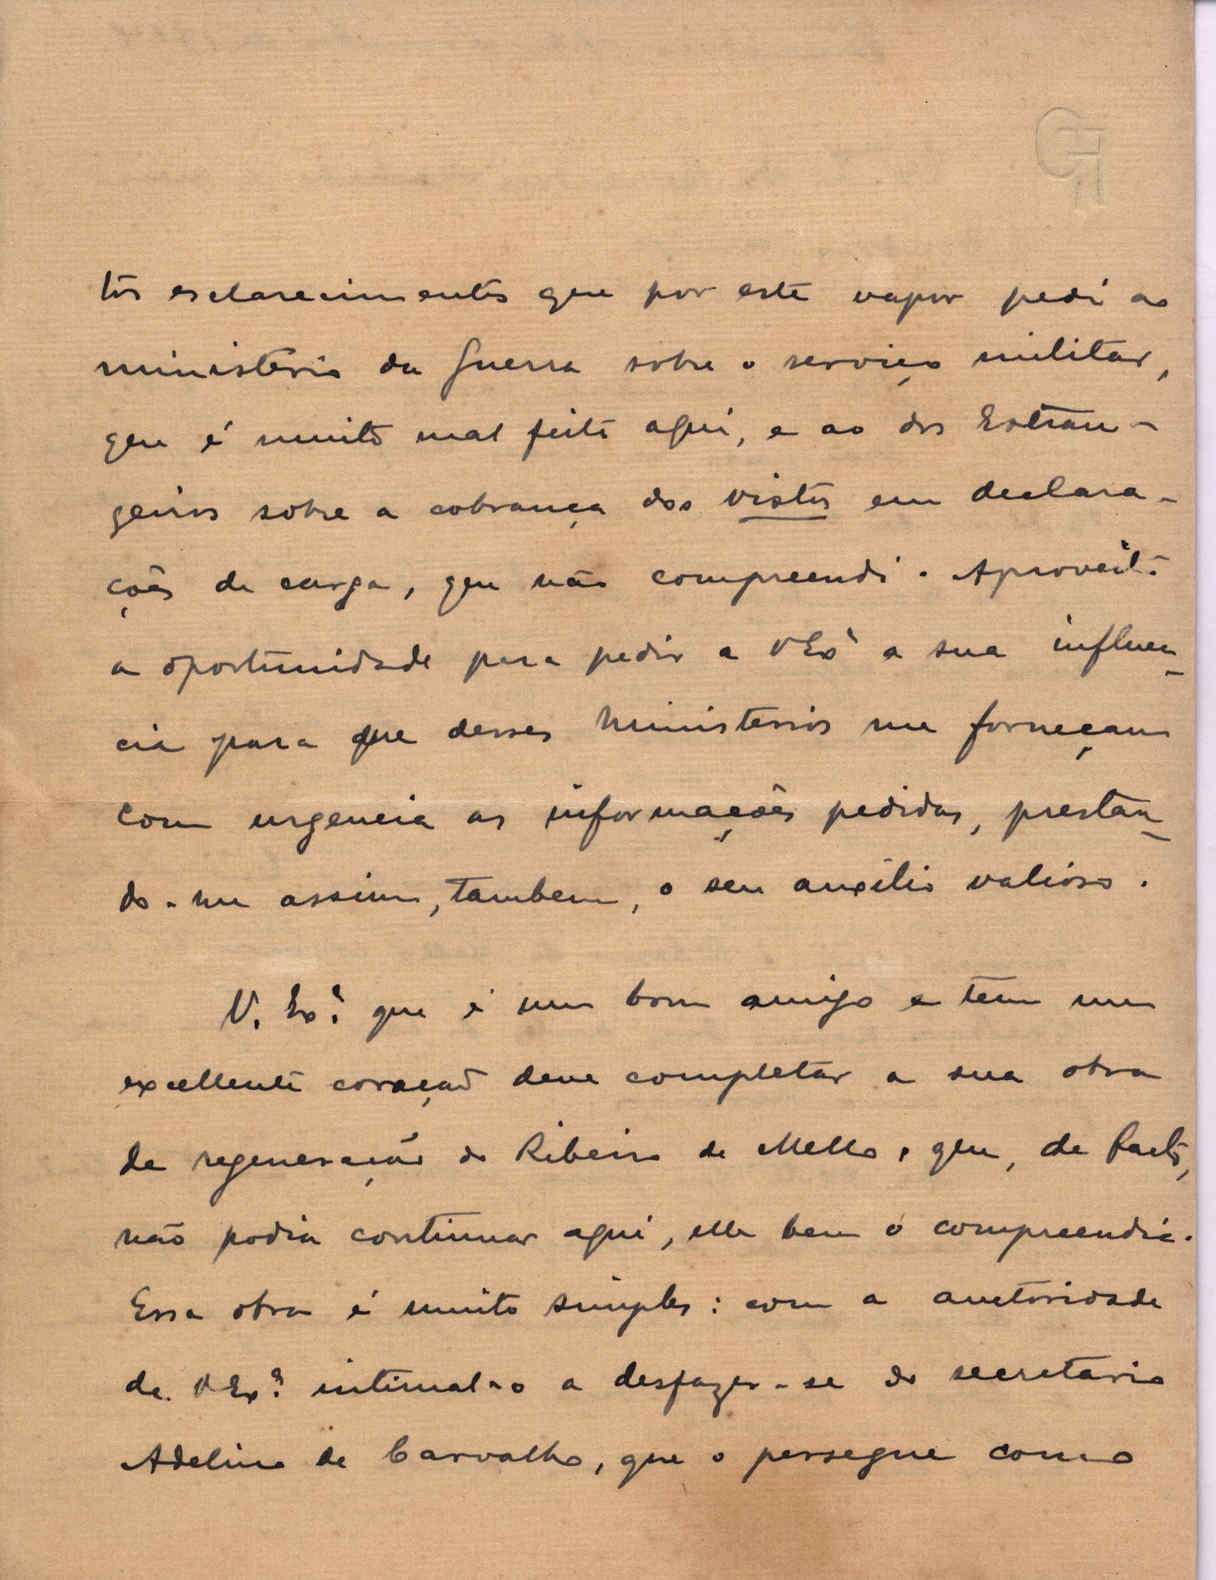 tos esclarecimentos que por este vapor pedi ao
ministerio da Guerra sobre o serviço militar,
que é muito mal feito aqui, e ao dos Extran-
geiros sobre a cobrança dos vistos em declara-
ções de carga, que não compreendi. Aproveito
a oportunidade para pedir a V Exª a sua influen-
cia para que desses Ministerios me forneçam
com urgencia as informações pedidas, prestan-
do-me assim, tambem, o seu auxilio valioso.
V. Exª. que é um bom amigo e tem um
excellente coração deve completar a sua obra
de regeneração do Ribeiro de Mello, que, de facto,
não podia continuar aqui, elle bem o compreendia.
Essa obra é muito simples: com a auctoridade
de V Exª. intimal-o a desfazer-se do secretario
Adelino de Carvalho, que o persegue como